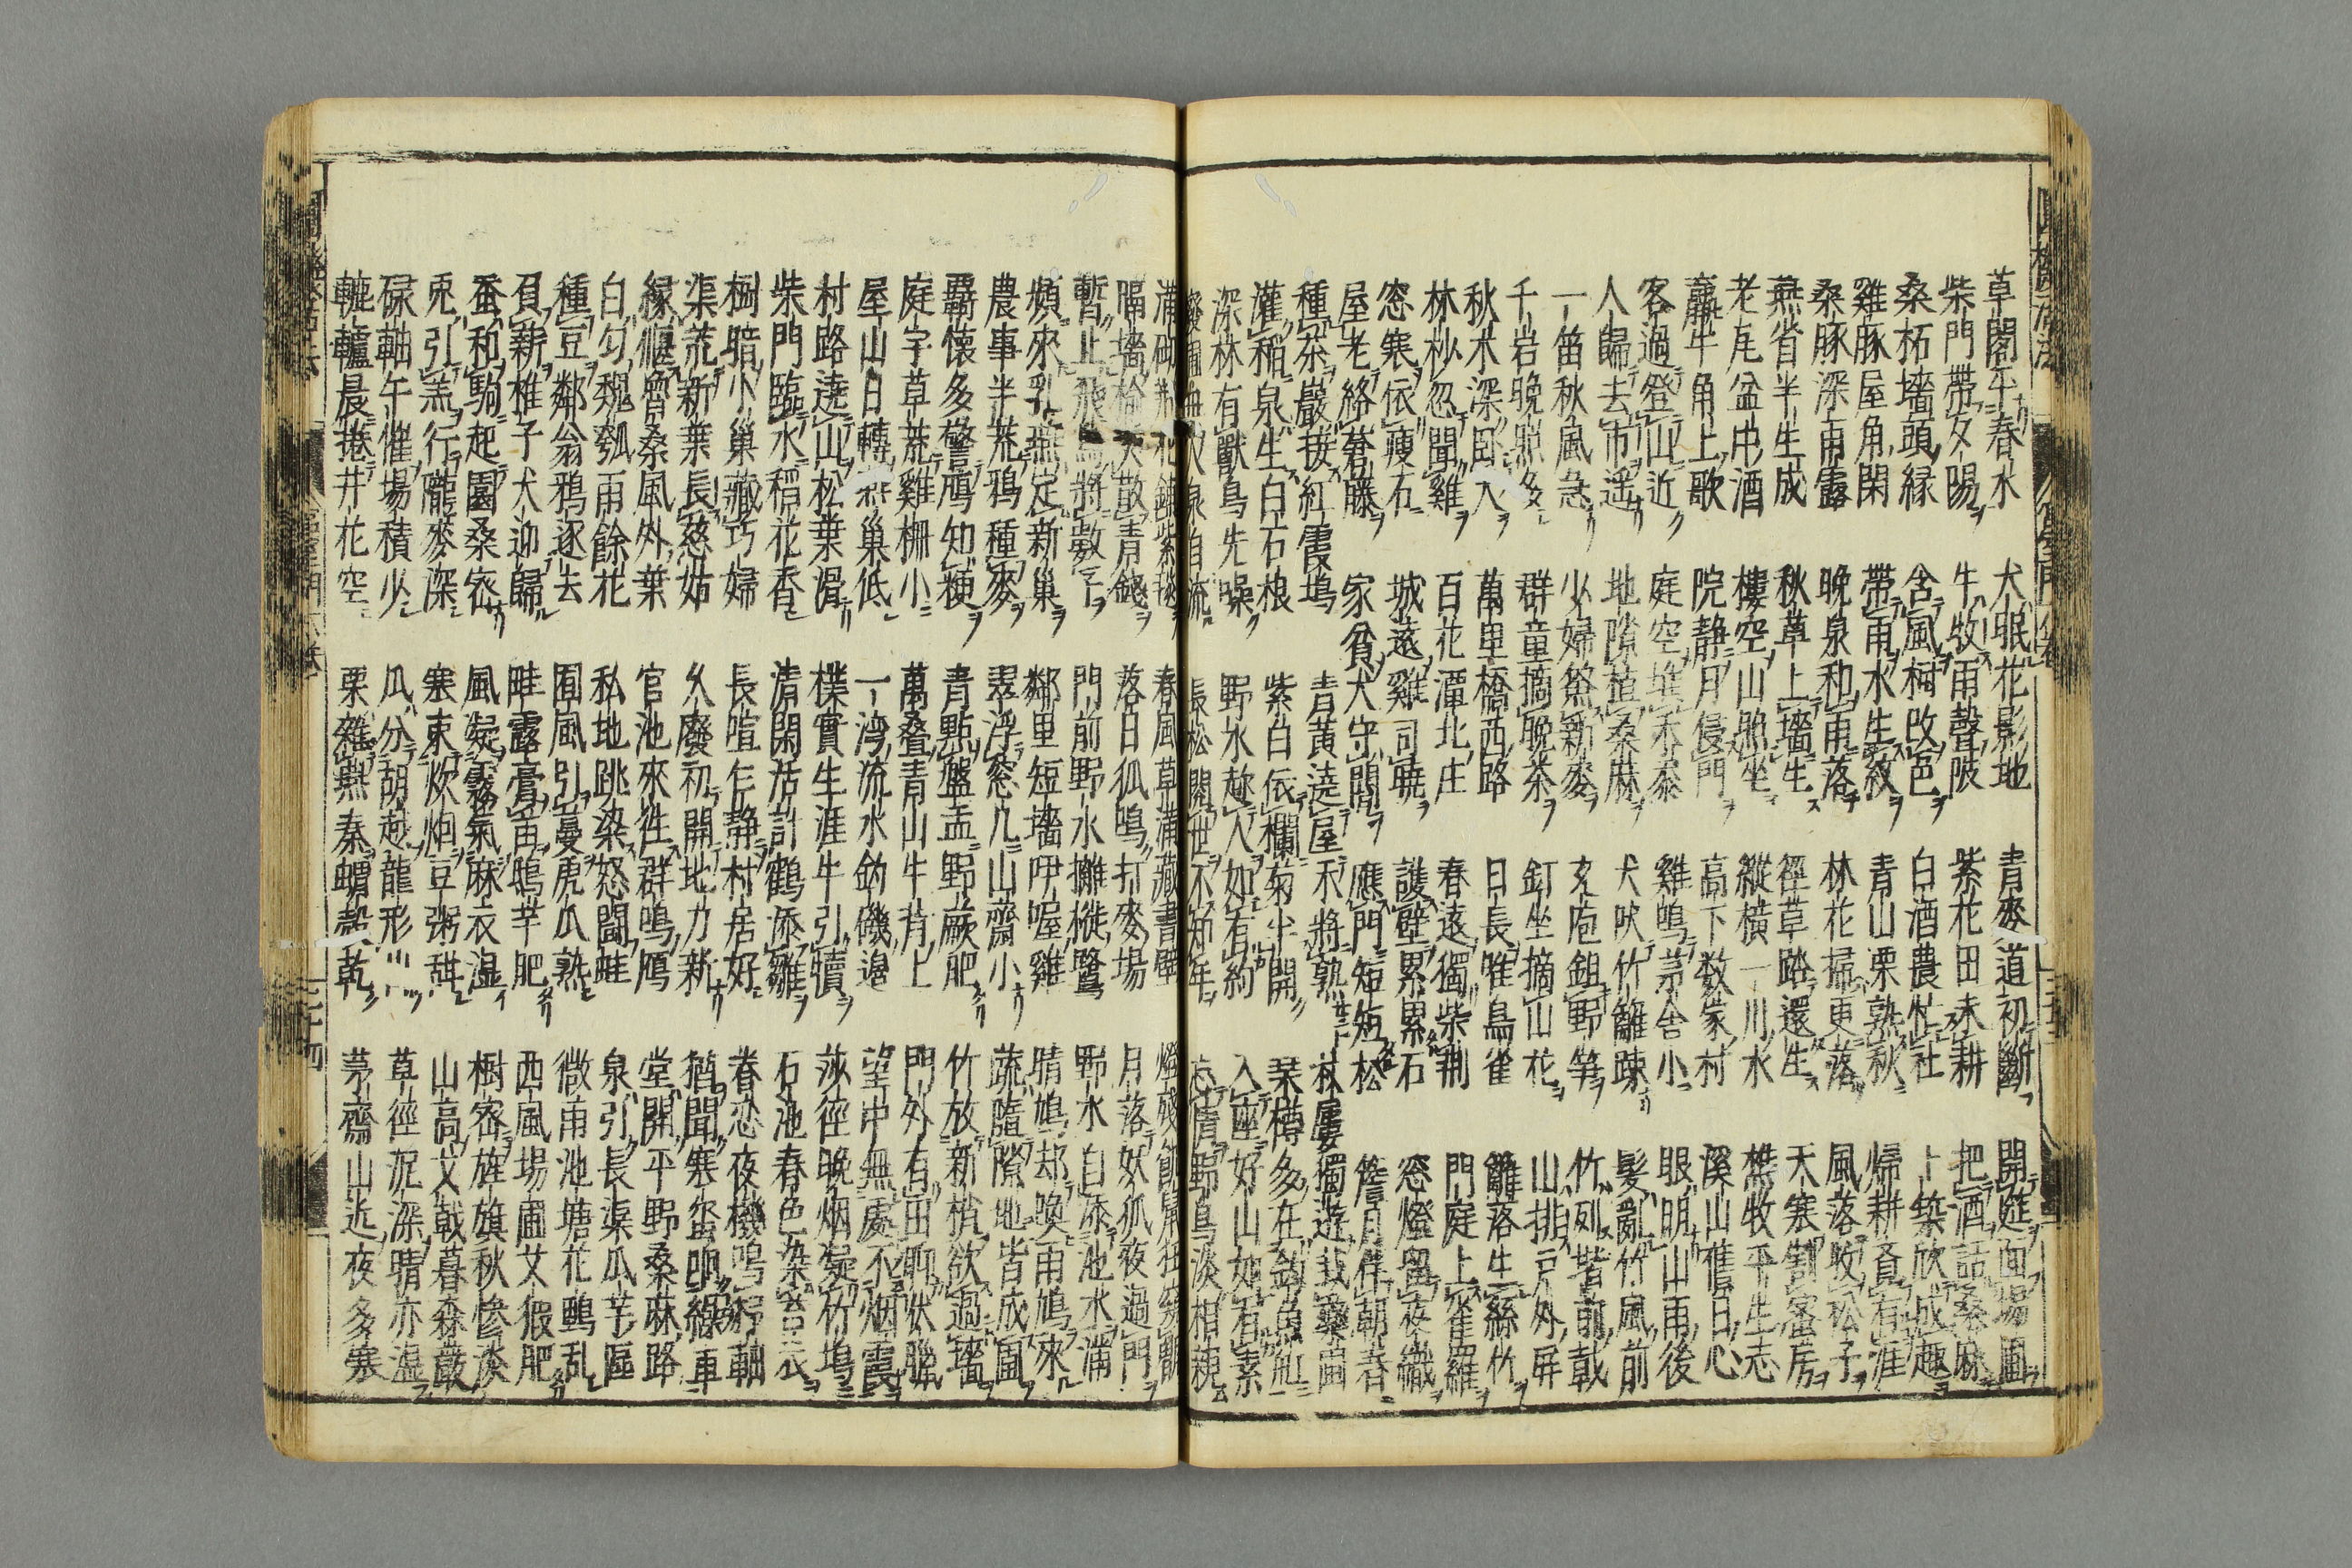 草閣午春水　犬眠花影地　青麥道初斷　開筵面場圃
柴門帶夕陽　牛牧雨聲陂　紫花田未耕　把酒話桑麻
桑柘墻頭緑　含風柯改色　白酒農忙社　卜築欣成趣
雞豚屋角閑　帶雨水生紋　青山栗熟秋　帰耕有涯
桑豚深雨露　晩泉和雨落　林花掃更落　風落收松子
燕省半生成　秋草上墻生　徑草踏還生　天寒割蜜房
老瓦盆中酒　樓空山照坐　縱橫一川水　樵牧平生志
牛角上歌　院静月侵門　高下数家村　溪山舊日心
客過登山近　庭空堆禾黍　雞鳴茅舎小　眼明山雨後
人歸去市遥　地隙植桑麻　犬吠竹籬疎　髪亂竹風前
一笛秋風急　少婦新麥　庖鉏野笋　竹列堦前戟
千岩晩照多　群童摘晩茶　釘坐摘山花　山排戸外屏
林杪忽聞雞　萬里橋西路　日長唯鳥雀　籬落生絲竹
秋木深臥人　百花潭北庄　春遠獨柴荆　門庭上雀羅
窓寒依瘦石　城遠雞司曉　護壁累累石　窓燈留夜織
屋老絡蒼藤　家貧犬守閽　應門短短松　簷月伴朝舂
種茶巖接紅霞塢　青黄遶屋禾將熟　林屋獨遊
灌稲泉生白石根　紫白依欄菊半開　樽多在釣魚缸
深林有獸鳥先噪　野水趁人如有約　入座好山如有素
無人泉自流　長松閲世不知年　忘情野鳥淡相親
滿砌荆花鋪紫毯　春風草滿藏書壁　燈殘飢鼠
隔墻榆莢散青錢　落日狐鳴打麥場　月落妖狐夜過門
暫止飛烏將數子　門前野水攤樅鷺　野水白添池水滿
頻來乳燕定新巢　鄰里短墻呼喔雞　晴鳩却喚雨鳩來
農事半荒鴉種麥　翠浮窓几山齋小　蔬隨隙地皆成圃
覊懐多警鴈知粳　青點盤盂野蕨肥　竹放新梢欲過墻
庭宇草荒雞柵小　萬疊青山牛背上　門外有田聊伏臘
屋山日轉燕巢低　一湾流水釣磯邉　望中無處不烟霞
村路遶山松葉滑　樸實生涯牛引犢　莎徑晩烟凝竹塢
柴門臨水稲花香　清閑活計鶴添雛　石池春色染苔衣
樹暗小巢藏巧婦　長喧乍静村居好　春恋夜機鳴軸
渠荒新葉長慈姑　久廢初開地力新　猶聞寒蛩響繰車
緑堰嘗桑風外葉　官池來往群鳴鴈　堂開平野桑麻路
白勾瓠雨餘花　私地跳染怒閙蛙　泉引長渠瓜芋區
種豆鄰翁鴉逐去　囿風引蔓虎瓜熟　微雨池塘花鴨乱
負新椎子犬迎歸　畦露膏苗鴟芋肥　西風場圃艾豭肥
蚕和駒起園桑密　風凝霧氣麻衣湿　樹密旌旗秋惨淡
兎引羔行隴麥深　寒束炊炮豆粥甜　山高艾戟暮森嚴
碌軸午催場積少　瓜分胡越龍形小　草徑泥深晴亦湿
轆轤晨捲井花空　栗雜燕秦蝟殻乾　茅齋山近夜多寒